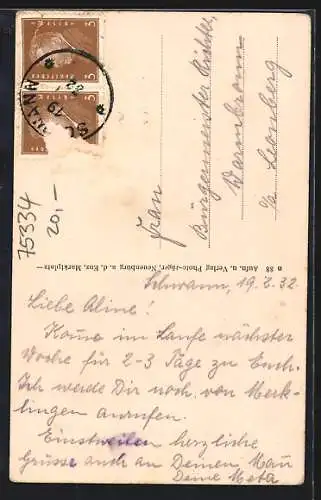 Schwann, 19.7.32
Liebe Aline!
Komme im Laufe nächster
Woche für 2-3 Tage zu Euch.
Ich werde Dir noch von Merk-
lingen anrufen.
Einstweilen herzliche
Grüsse auch an Deinen Mann
Deine Meta
Frau
Bürgermeister Richter
Warmbronn
b/ Leonberg
n 88 Aufn. u. Verlag Photo-Jäger, Neuenbürg a. d. Enz, Marktplatz
75334
20,-
5
5